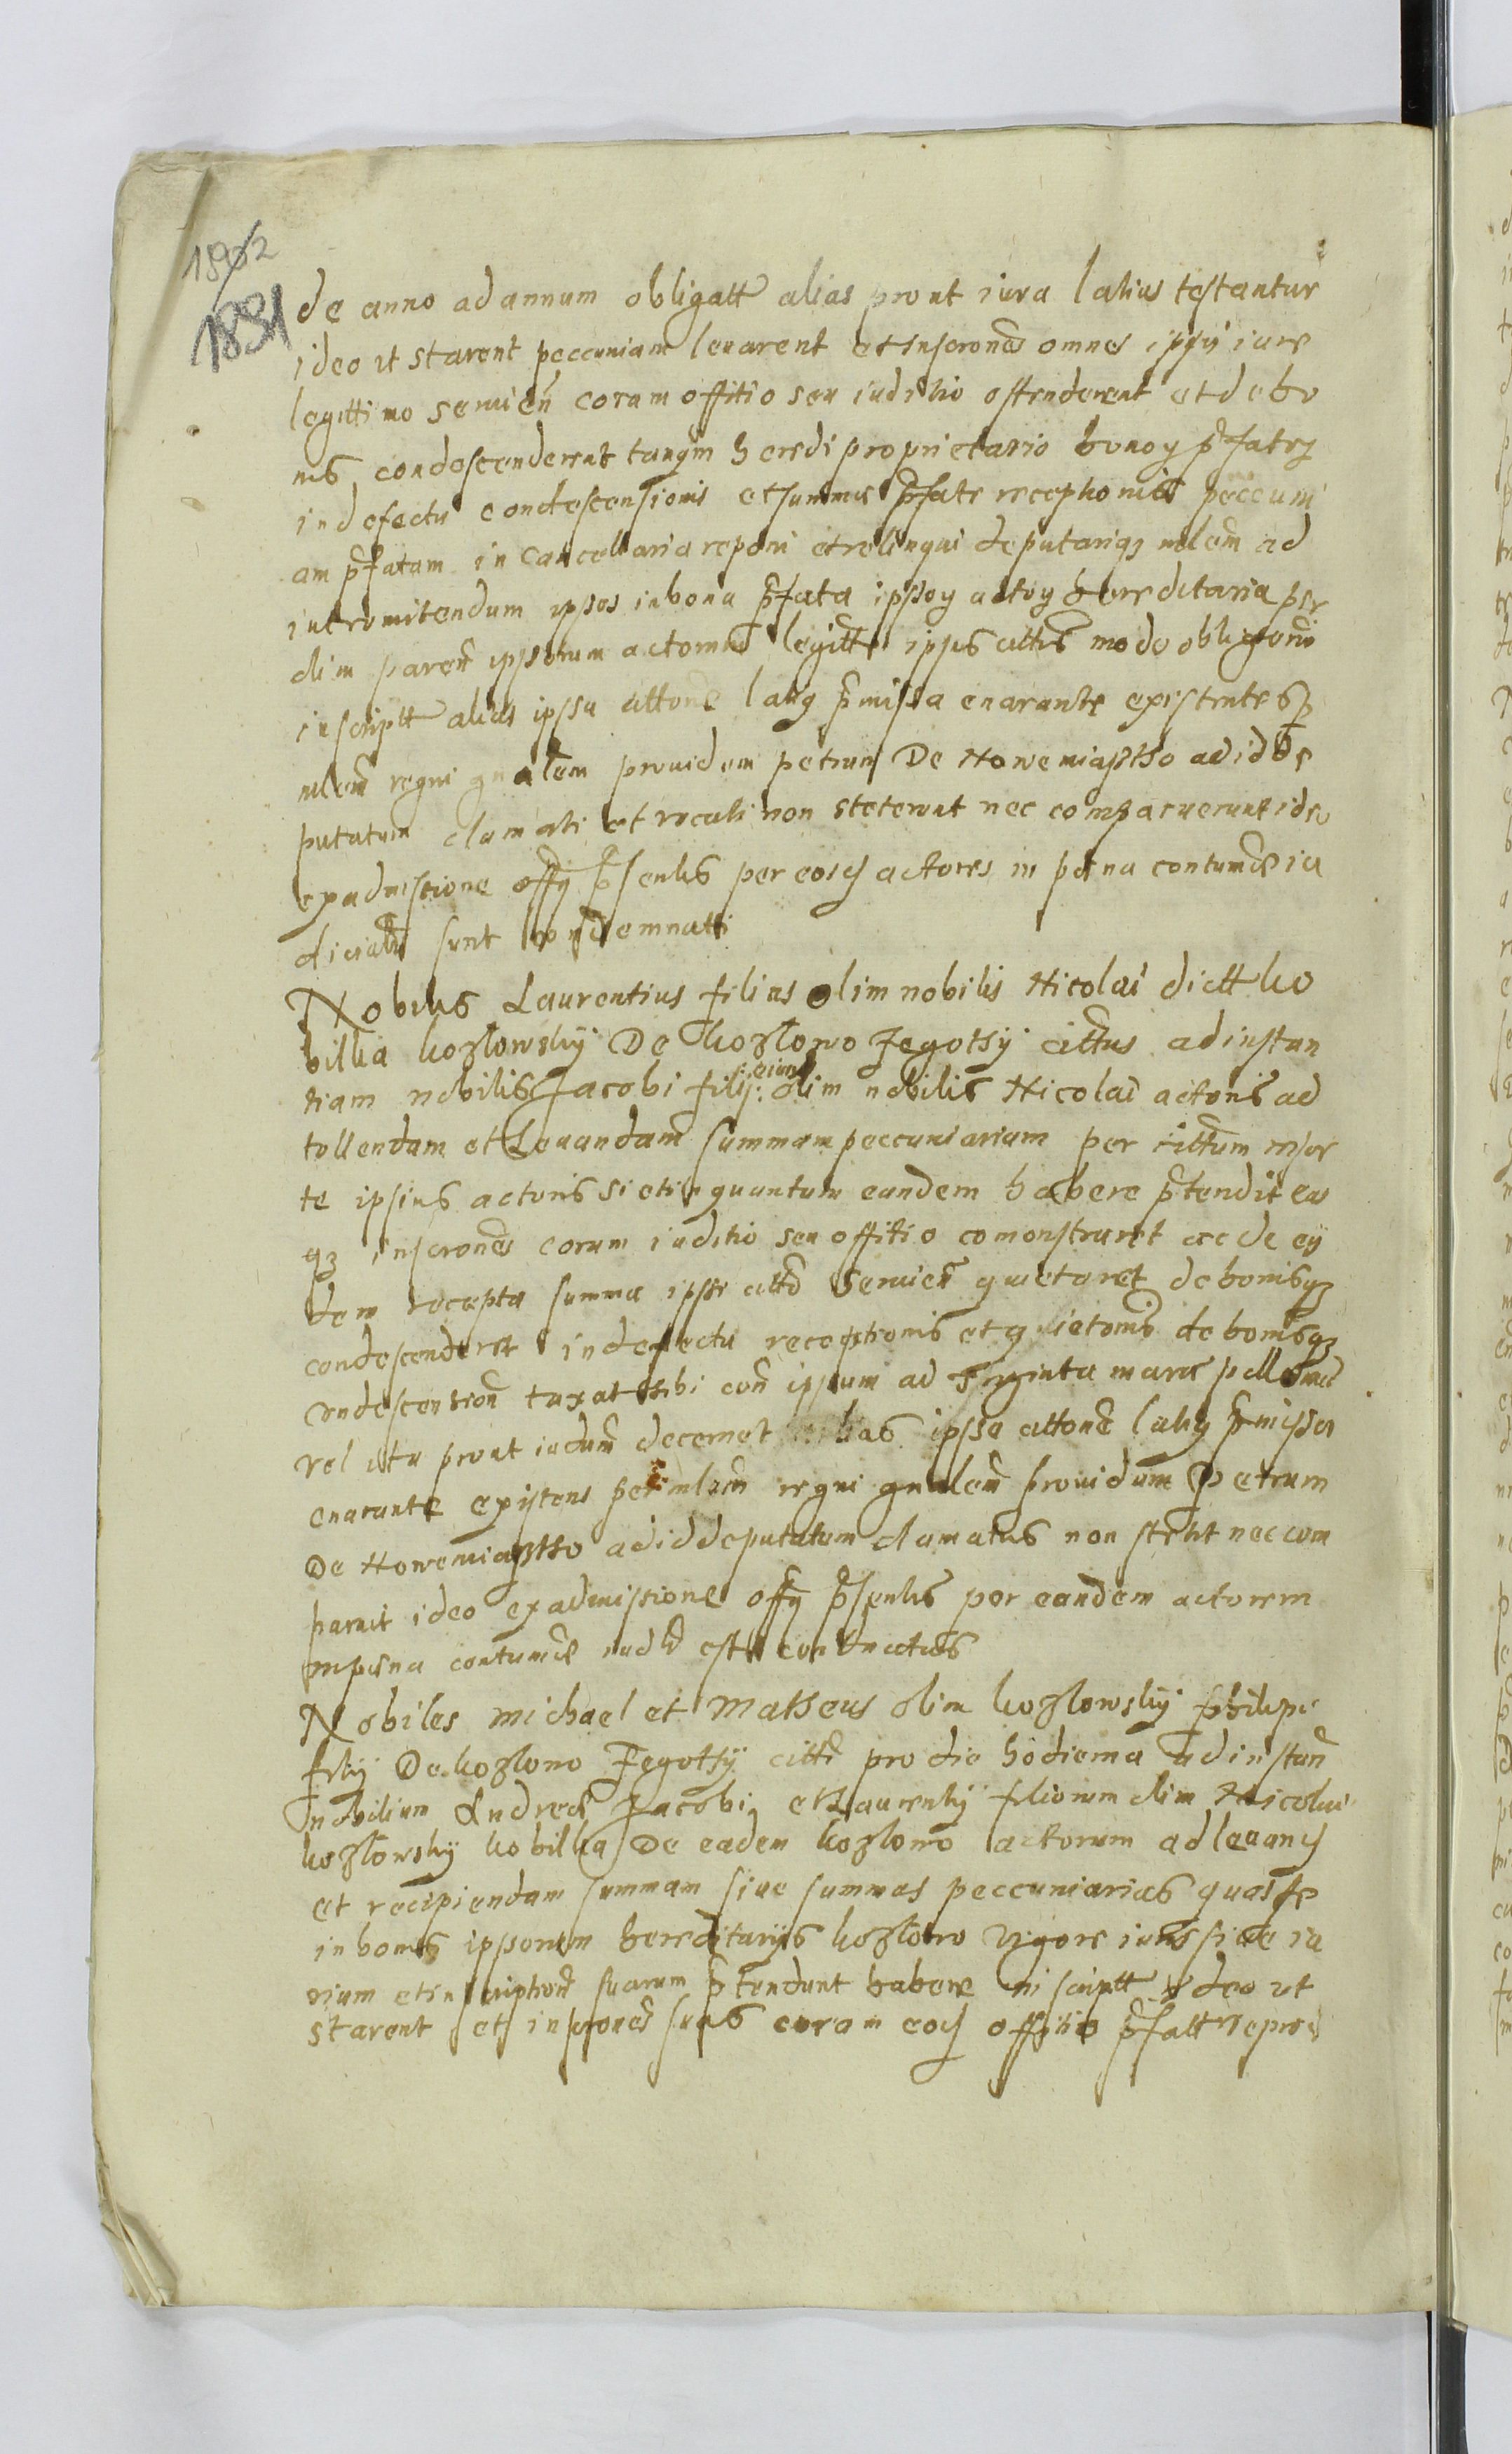 1892
1891
de anno ad annum obligatt alias prout iura latius testantur
ideo ut starent peccuniam leuarent et Inscrones omnes ipsii iure
legittimo seruien coram offitio seu iuditio ostenderent et de bo
nis condescenderent tanqm heredi proprietario bonoꝝ pfatoꝝ
in defectu condescensionis et summe pfate receptionis peccuni
am pfatam in Cancellaria reponi et relinqui deputariqꝫ mlem ad
intromitendum ipsos in bona pfata ipsoꝝ actoꝝ hereditaria per
olim paren ipsorum actorum legitte ipsis cittis modo obligatorio
inscriptt alias ipsa cittone latiꝰ pmissa enarante existentes p
mlem regni gnalem prouidum petrum De Nowemiastho ad id de
putatum clamati et vocati non steterunt nec comparuerunt ideo
ex admissione offy psentis per eosd actores in pena contumacie iu
dicialiter sunt condemnatti
Nobilis Laurentius filius olim nobilis Nicolai dictt ko
bilka kozlowsky De kozlowo Jegothy cittus ad instan
tiam nobilis Jacobi filii: eiusd: olim nobilis Nicolai actoris ad
tollendam et Leuandam summam peccuniariam per cittum in sor
te ipsius actoris si et in quantum eandem habere ptendit eas
qꝫ inscrones coram iuditio seu offitio comonstraret ac de ea
dem recepta summa ipse citto seruien quietaret de bonisqꝫ
condesconderet in defectu receptionis et quietonis de bonisqꝫ
condescension taxat sibi con ipsum ad Triginta marc peccunie
vel ita prout iudium decernet alias ipsa cittone latiꝰ pmissa
enarante existens per mlem regni gnalem prouidum Petrum
De Nowemiastho ad id deputatum clamatus non stetit nec com
paruit ideo ex admissione offy psentis per eandem actorem
in pena contumacie iudli est condnatus
Nobiles Michael et Matheus olim kozlowsky philipi
filij De kozlowo Jegothy citti pro die hodierna ad instan
nobilium Andree Jacobi et Laurentij filiorum olim Nicolai
kozlowsky kobilka De eadem kozlowo actorum ad leuand
et recipiendam summam siue summas peccuniarias quas se
in bonis ipsorum hereditarijs kozlowo vigore iuris siue iu
rium et inscription suarum ptendunt habere inscriptt ideo ut
starent et inscrones suas coram eod offitio pfatt repro